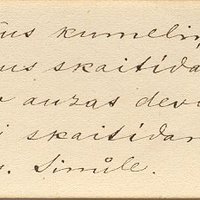 us kumeliņ
us skaitīda
auzas devu
i skaitīdan
Simûle.